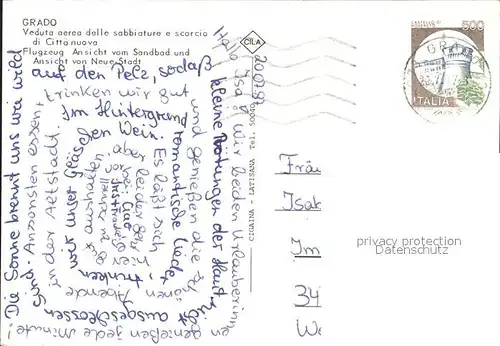 GRADO
Veduta aerea delle sabbiature e scorcio
di Cittanuova
Flugzeug Ansicht vom Sandbad und
Ansicht von Neue Stadt
CILA
500
ITALIA
GRADO
20.07.87
Hallo Isa! Wir beiden Urlauberinnen
genießen jede Minute!
Die Sonne brennt uns wie wild
auf den Pelz, sodaß
kleine Rötungen der Haut
nicht ausgeschlossen
sind. Ansonsten essen +
trinken wir gut
und genießen die schönen
Abende
in der Altstadt.
Im Hintergrund
romantische Lieder,
trinken
wir unser Gläschen Wein.
Es läßt sich
hier
aushalten,
aber leider
CICAINA - LATISANA - Tel.
Fräu
Isab
Im
34
We
privacy protection
Datenschutz